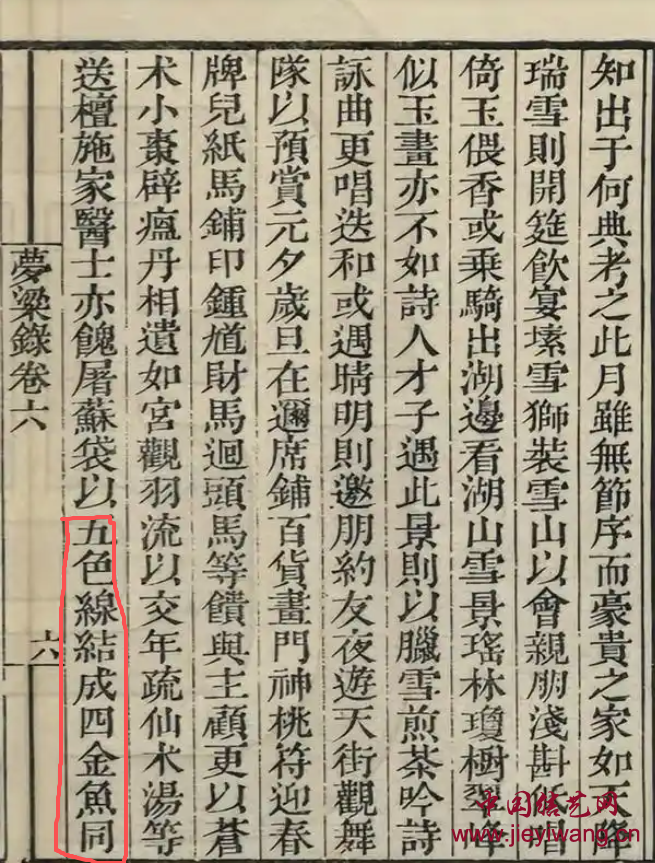 知出于何典考之此月雖無節序而豪貴之家如天降
瑞雪則開筵飲宴塐雪獅裝雪山以會親朋淺斟低唱
倚玉偎香或乘騎出湖邊看湖山雪景瑤林瓊樹翠峰
似玉畫亦不如詩人才子遇此景則以臘雪煎茶吟詩
詠曲更唱迭和或遇晴明則邀朋約友夜遊天街觀舞
隊以預賞元夕歲旦在邇席鋪百貨畫門神桃符迎春
牌兒紙馬鋪印鍾馗財馬迴頭馬等饋與主顧更以蒼
术小棗辟瘟丹相遺如宮觀羽流以交年疏仙术湯等
送檀施家醫士亦餽屠蘇袋以五色線結成四金魚同
夢粱錄卷六
六
中国结艺网
www.jieyiwang.cn